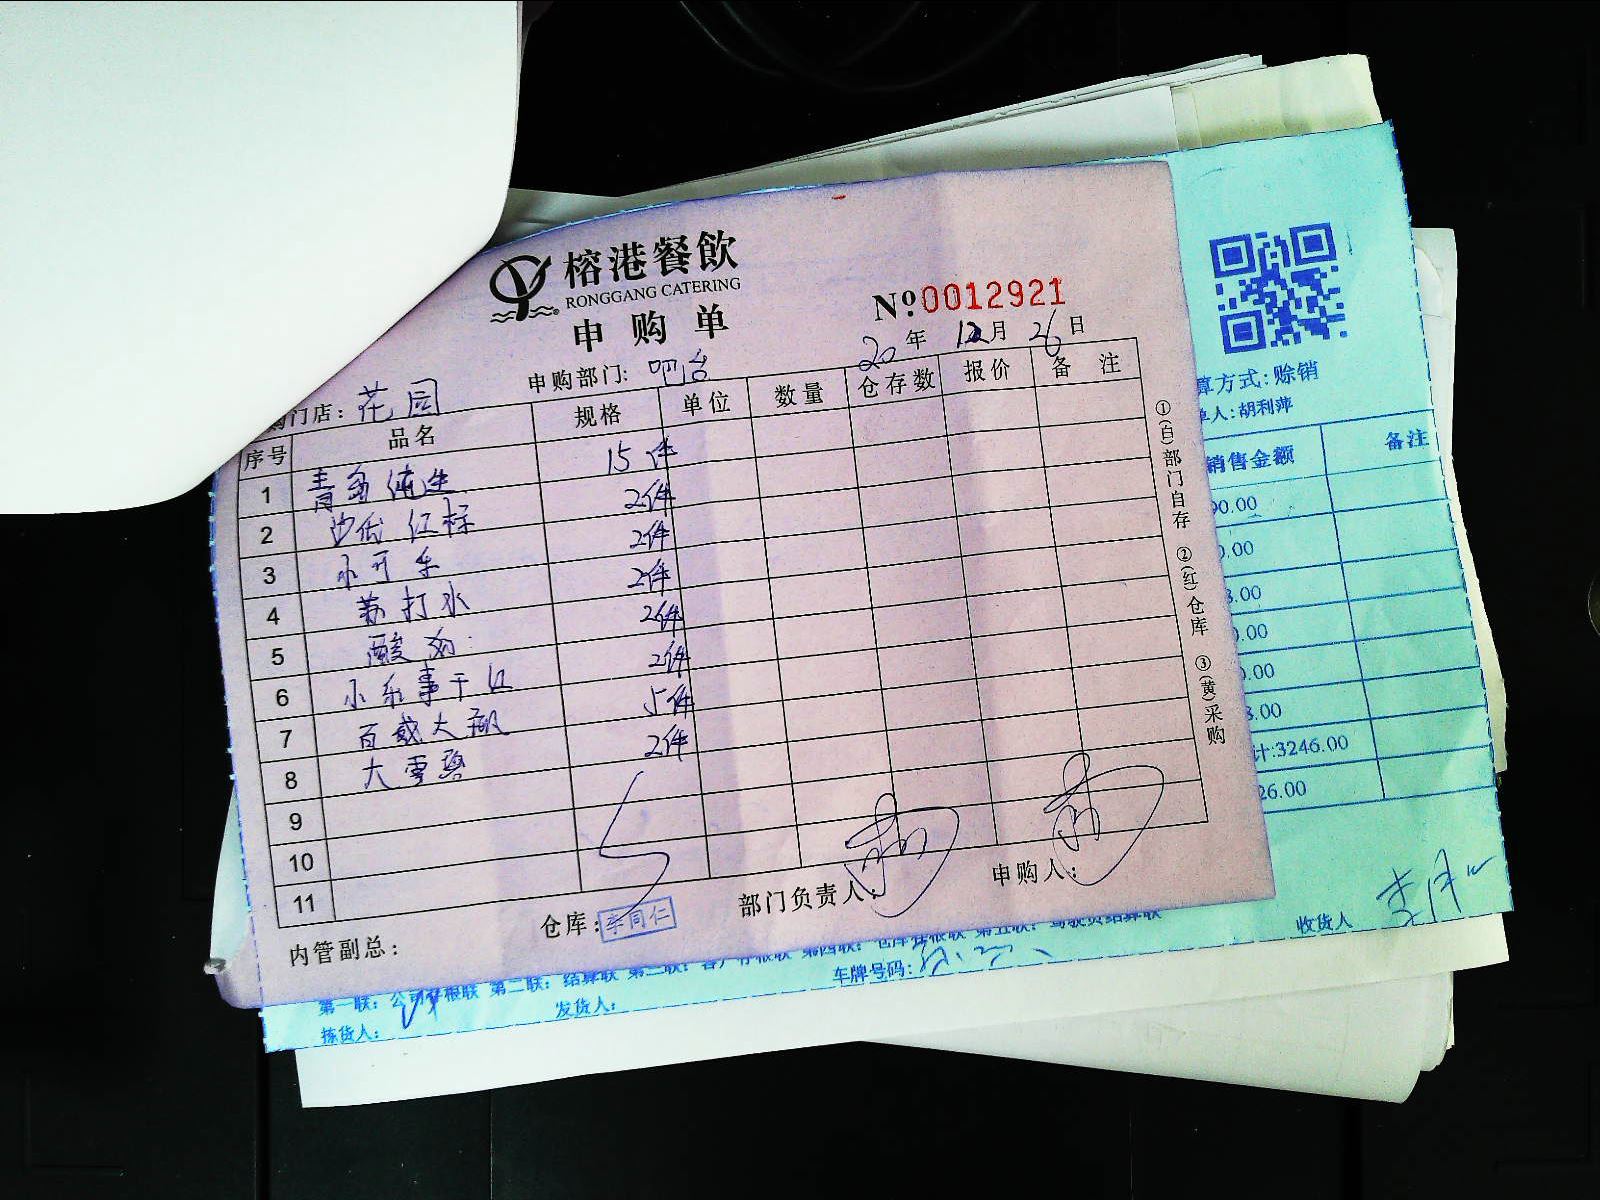 榕港餐飲
RONGGANG CATERING
申购单
№:0012921
20年 12月 26日
门店：花园 申购部门：吧台
序号 品名 规格 单位 数量 仓存数 报价 备注
1 青岛纯生 15件
2 沙优 红标 2件
3 小可乐 2件
4 苏打水 2件
5 酸奶 2件
6 小乐事干红 2件
7 百威大瓶 5件
8 大雪碧 2件
9
10
11
①(白)部门自存 ②(红)仓库 ③(黄)采购
内管副总： 仓库：李同仁 部门负责人： 申购人：
算方式：赊销
单人：胡利萍
销售金额 备注
00.00
0.00
8.00
0.00
0.00
8.00
计:3246.00
26.00
收货人
第一联：公司存根联 第二联：结算联 第三联：客户存根联 第四联：仓库存根联 第五联：驾驶员结算联
拣货人： 发货人： 车牌号码：